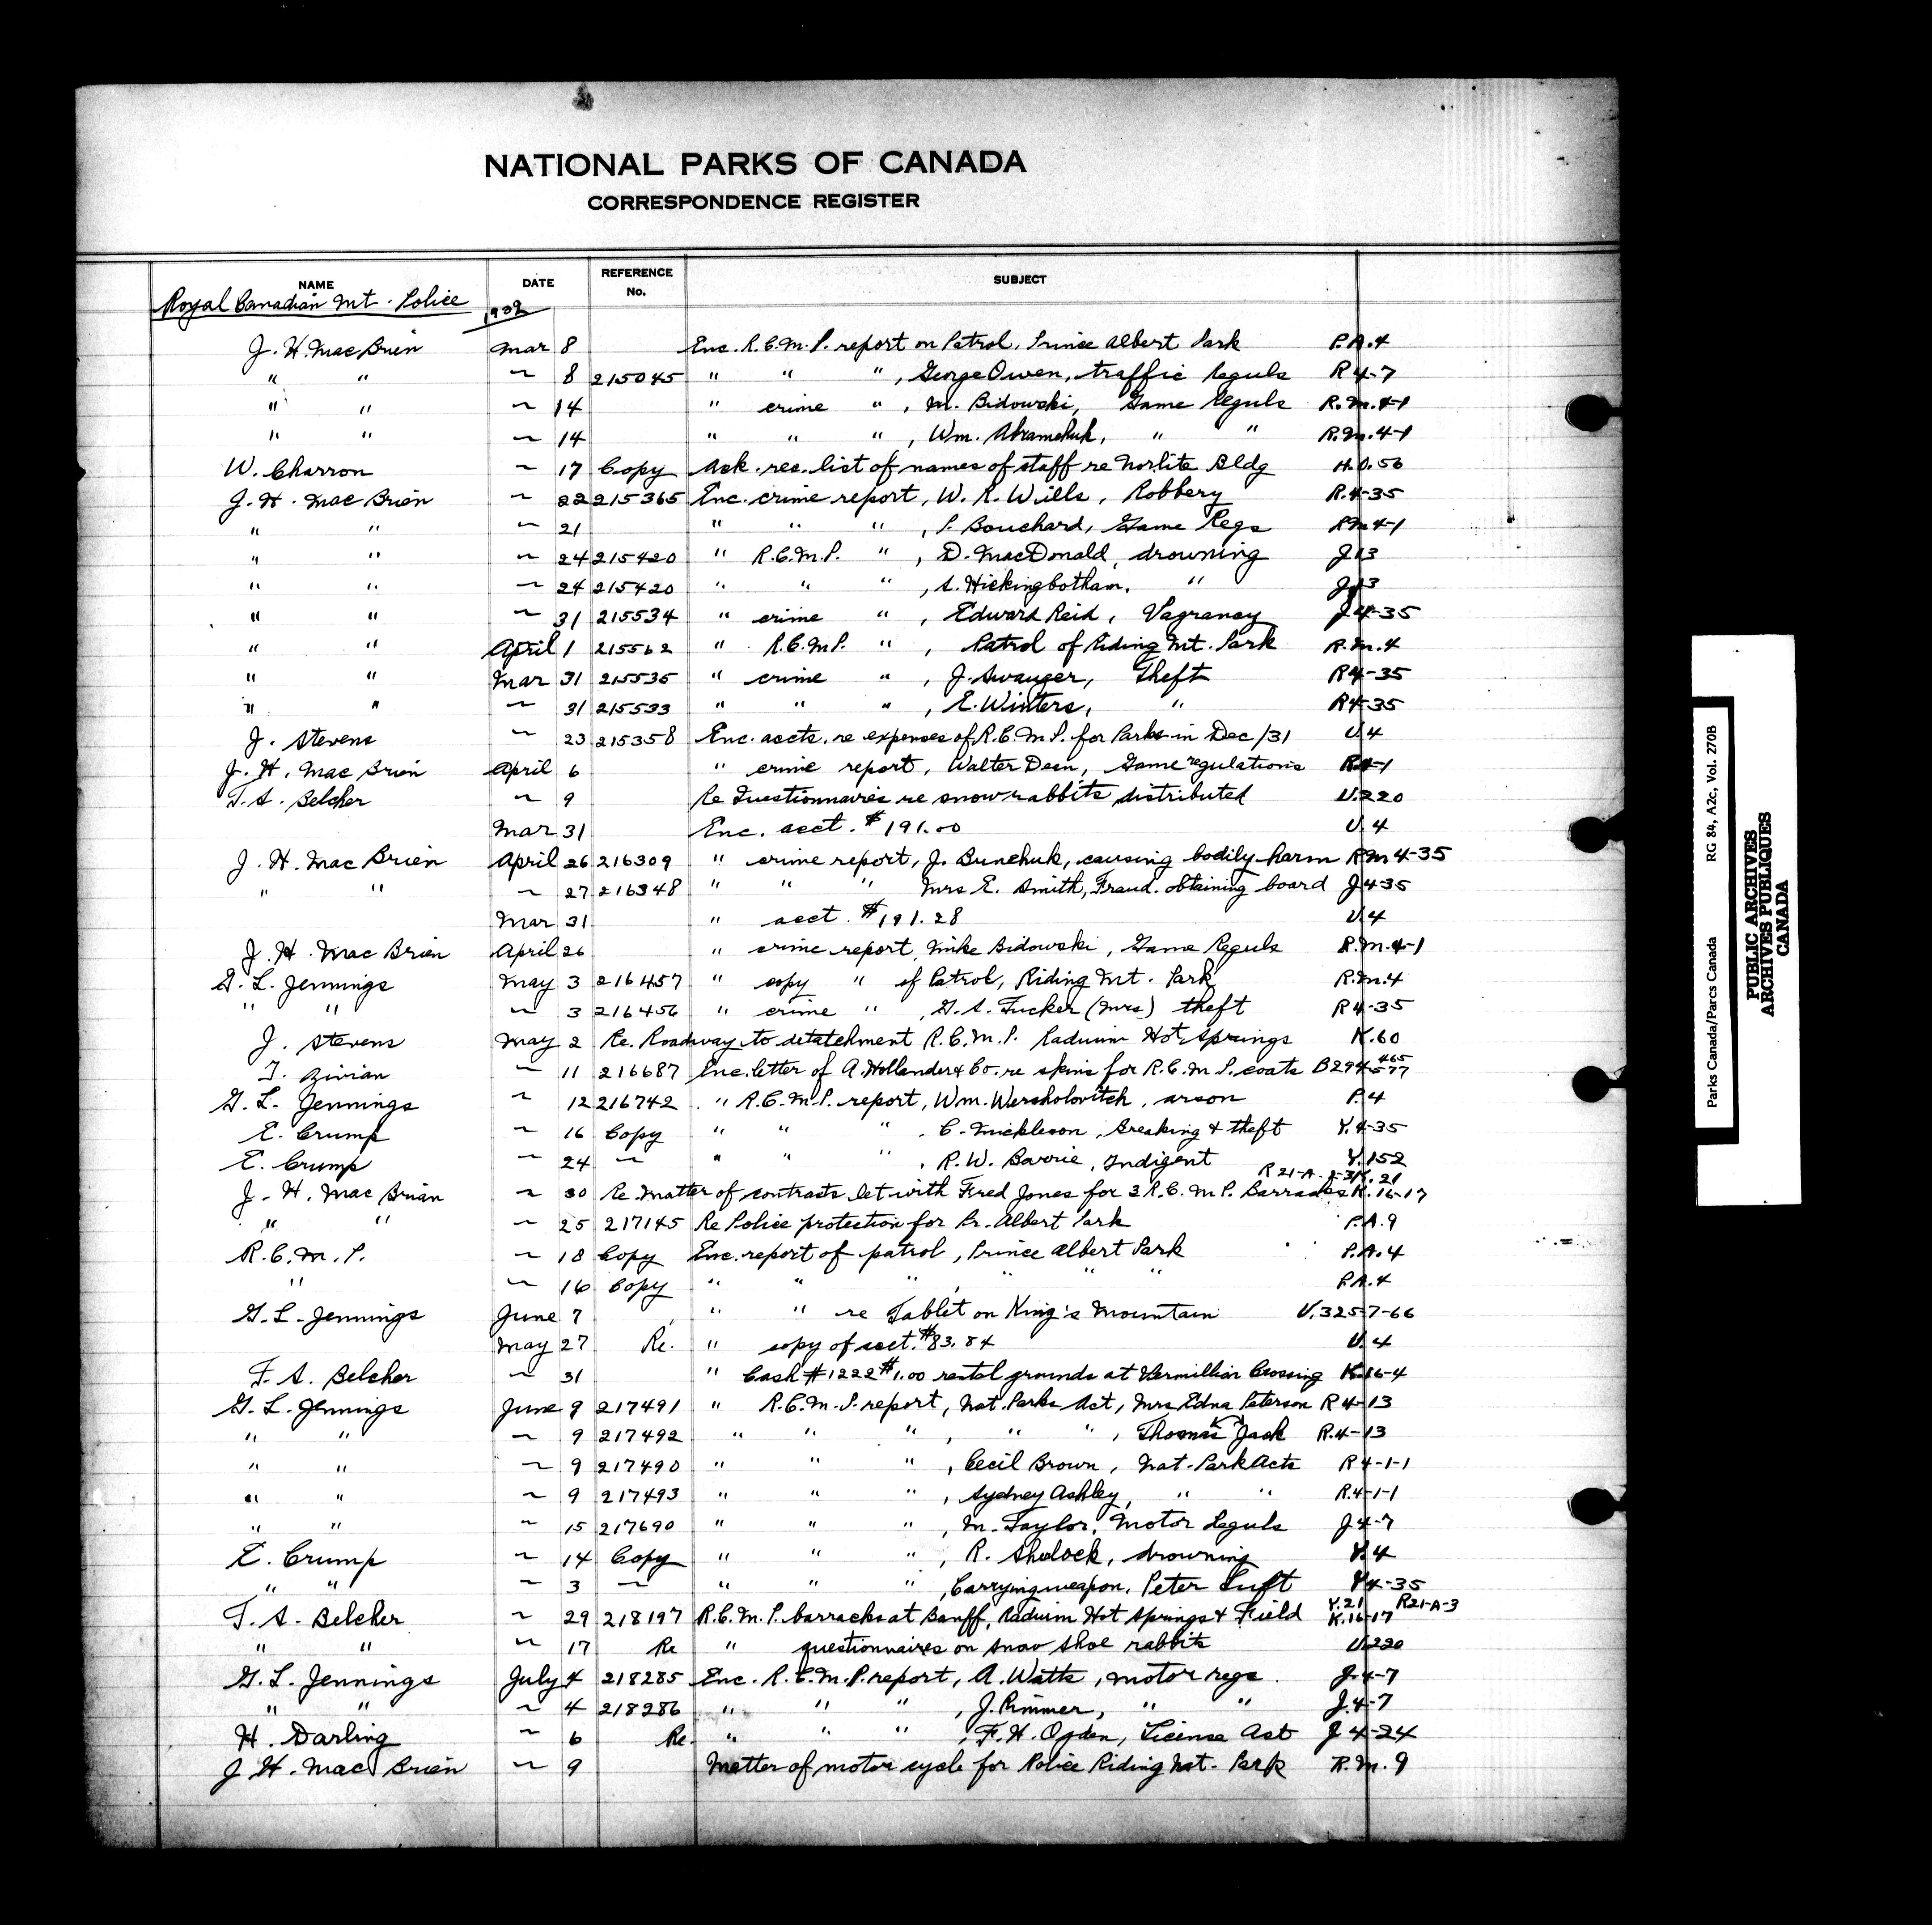 NATIONAL PARKS OF CANADA
CORRESPONDENCE REGISTER
NAME DATE REFERENCE No. SUBJECT
Royal Canadian Mt. Police 1932
J. H. MacBrien Mar 8 Enc. R.C.M.P. report on Patrol, Prince Albert Park P.A.4
" " ~ 8 215045 " " ", George Owen, traffic Reguls R 4-7
" " ~ 14 " crime ", M. Bidowski, Game Reguls R.M.4-1
" " ~ 14 " " ", Wm. Abramchuk, " " R.M.4-1
W. Charron ~ 17 Copy Ack. rec. list of names of staff re Norlite Bldg H.O.56
J. H. MacBrien ~ 22 215365 Enc. crime report, W. R. Wills, Robbery R.4-35
" " ~ 21 " " ", P. Bouchard, Game Regs RM4-1
" " ~ 24 215420 " R.C.M.P. ", D. MacDonald, drowning J.13
" " ~ 24 215420 " " ", S. Hickingbotham, " J.13
" " ~ 31 215534 " crime ", Edward Reid, Vagrancy J4-35
" " April 1 215562 " R.C.M.P. ", Patrol of Riding Mt. Park R.M.4
" " Mar 31 215535 " crime ", J. Swauger, Theft R4-35
" " ~ 31 215533 " " ", E. Winters, " R4-35
J. Stevens ~ 23 215358 Enc. accts. re expenses of R.C.M.P. for Parks in Dec/31 U.4
J. H. MacBrien April 6 " crime report, Walter Deen, Game regulations R.4-1
T. S. Belcher ~ 9 Re Questionnaires re snow rabbits distributed U.220
Mar 31 Enc. acct. $191.00 U.4
J. H. MacBrien April 26 216309 " crime report, J. Bunchuk, causing bodily harm RM4-35
" " ~ 27 216348 " " " Mrs E. Smith, Fraud. obtaining board J4-35
Mar 31 " acct. $191.28 U.4
J. H. MacBrien April 26 " crime report, Mike Bidowski, Game Reguls R.M.4-1
G. L. Jennings May 3 216457 " copy " of Patrol, Riding Mt. Park R.M.4
" " ~ 3 216456 " crime ", G. S. Tucker (Mrs) theft R4-35
J. Stevens May 2 Re. Roadway to detatchment R.C.M.P. Radium Hot Springs K.60
I. Zivian ~ 11 216687 Enc. letter of A. Hollander & Co. re skins for R.C.M.P. coats B294-465-577
G. L. Jennings ~ 12 216742 " R.C.M.P. report, Wm. Warsholovitch, arson P.4
E. Crump ~ 16 Copy " " ", C. Mickleson, Breaking & theft Y.4-35
E. Crump ~ 24 ~ " " ", R. W. Barrie, Indigent Y.152
J. H. MacBrian ~ 30 Re matter of contracts let with Fred Jones for 3 R.C.M.P. Barracks R21-A-3 Y.21 K.16-17
" " ~ 25 217145 Re Police protection for Pr. Albert Park P.A.9
R.C.M.P. ~ 18 Copy Enc. report of patrol, Prince Albert Park P.A.4
" ~ 16 Copy " " ", " " " P.A.4
G. L. Jennings June 7 " " re Tablet on King's Mountain U.325-7-66
May 27 Re. " copy of acct. $83.84 U.4
T. S. Belcher ~ 31 " Cash #1222 $1.00 rental grounds at Vermillion Crossing K.16-4
G. L. Jennings June 9 217491 " R.C.M.P. report, Nat. Parks Act, Mrs Edna Peterson R4-13
" " ~ 9 217492 " " ", " ", Thomas Jack R.4-13
" " ~ 9 217490 " " ", Cecil Brown, Nat. Park Acts R4-1-1
" " ~ 9 217493 " " ", Sydney Ashley, " " R.4-1-1
" " ~ 15 217690 " " ", M. Taylor, Motor Reguls J.4-7
E. Crump ~ 14 Copy " " ", R. Shulock, drowning Y.4
" " ~ 3 ~ " " ", Carrying weapon, Peter Luft Y4-35
T. S. Belcher ~ 29 218197 R.C.M.P. barracks at Banff, Radium Hot Springs & Field Y.21 K.16-17 R21-A-3
" " ~ 17 Re " questionnaires on snow shoe rabbits U.220
G. L. Jennings July 4 218285 Enc. R.C.M.P. report, A. Watts, motor regs. J.4-7
" " ~ 4 218286 " " ", J. Rimmer, " " J.4-7
H. Darling ~ 6 Re. " " ", F. H. Ogden, License Act J4-24
J H. MacBrien ~ 9 Matter of motor cycle for Police Riding Mt. Park R.M.9
Parks Canada/Parcs Canada RG 84, A2c, Vol. 270B
PUBLIC ARCHIVES
ARCHIVES PUBLIQUES
CANADA